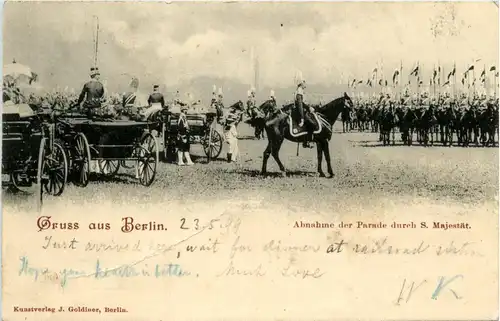 Gruss aus Berlin. 23.5.99
Abnahme der Parade durch S. Majestät.
Just arrived here, wait for dinner at railroad station
Hope your heart is better. Much Love
W K
Kunstverlag J. Goldiner, Berlin.